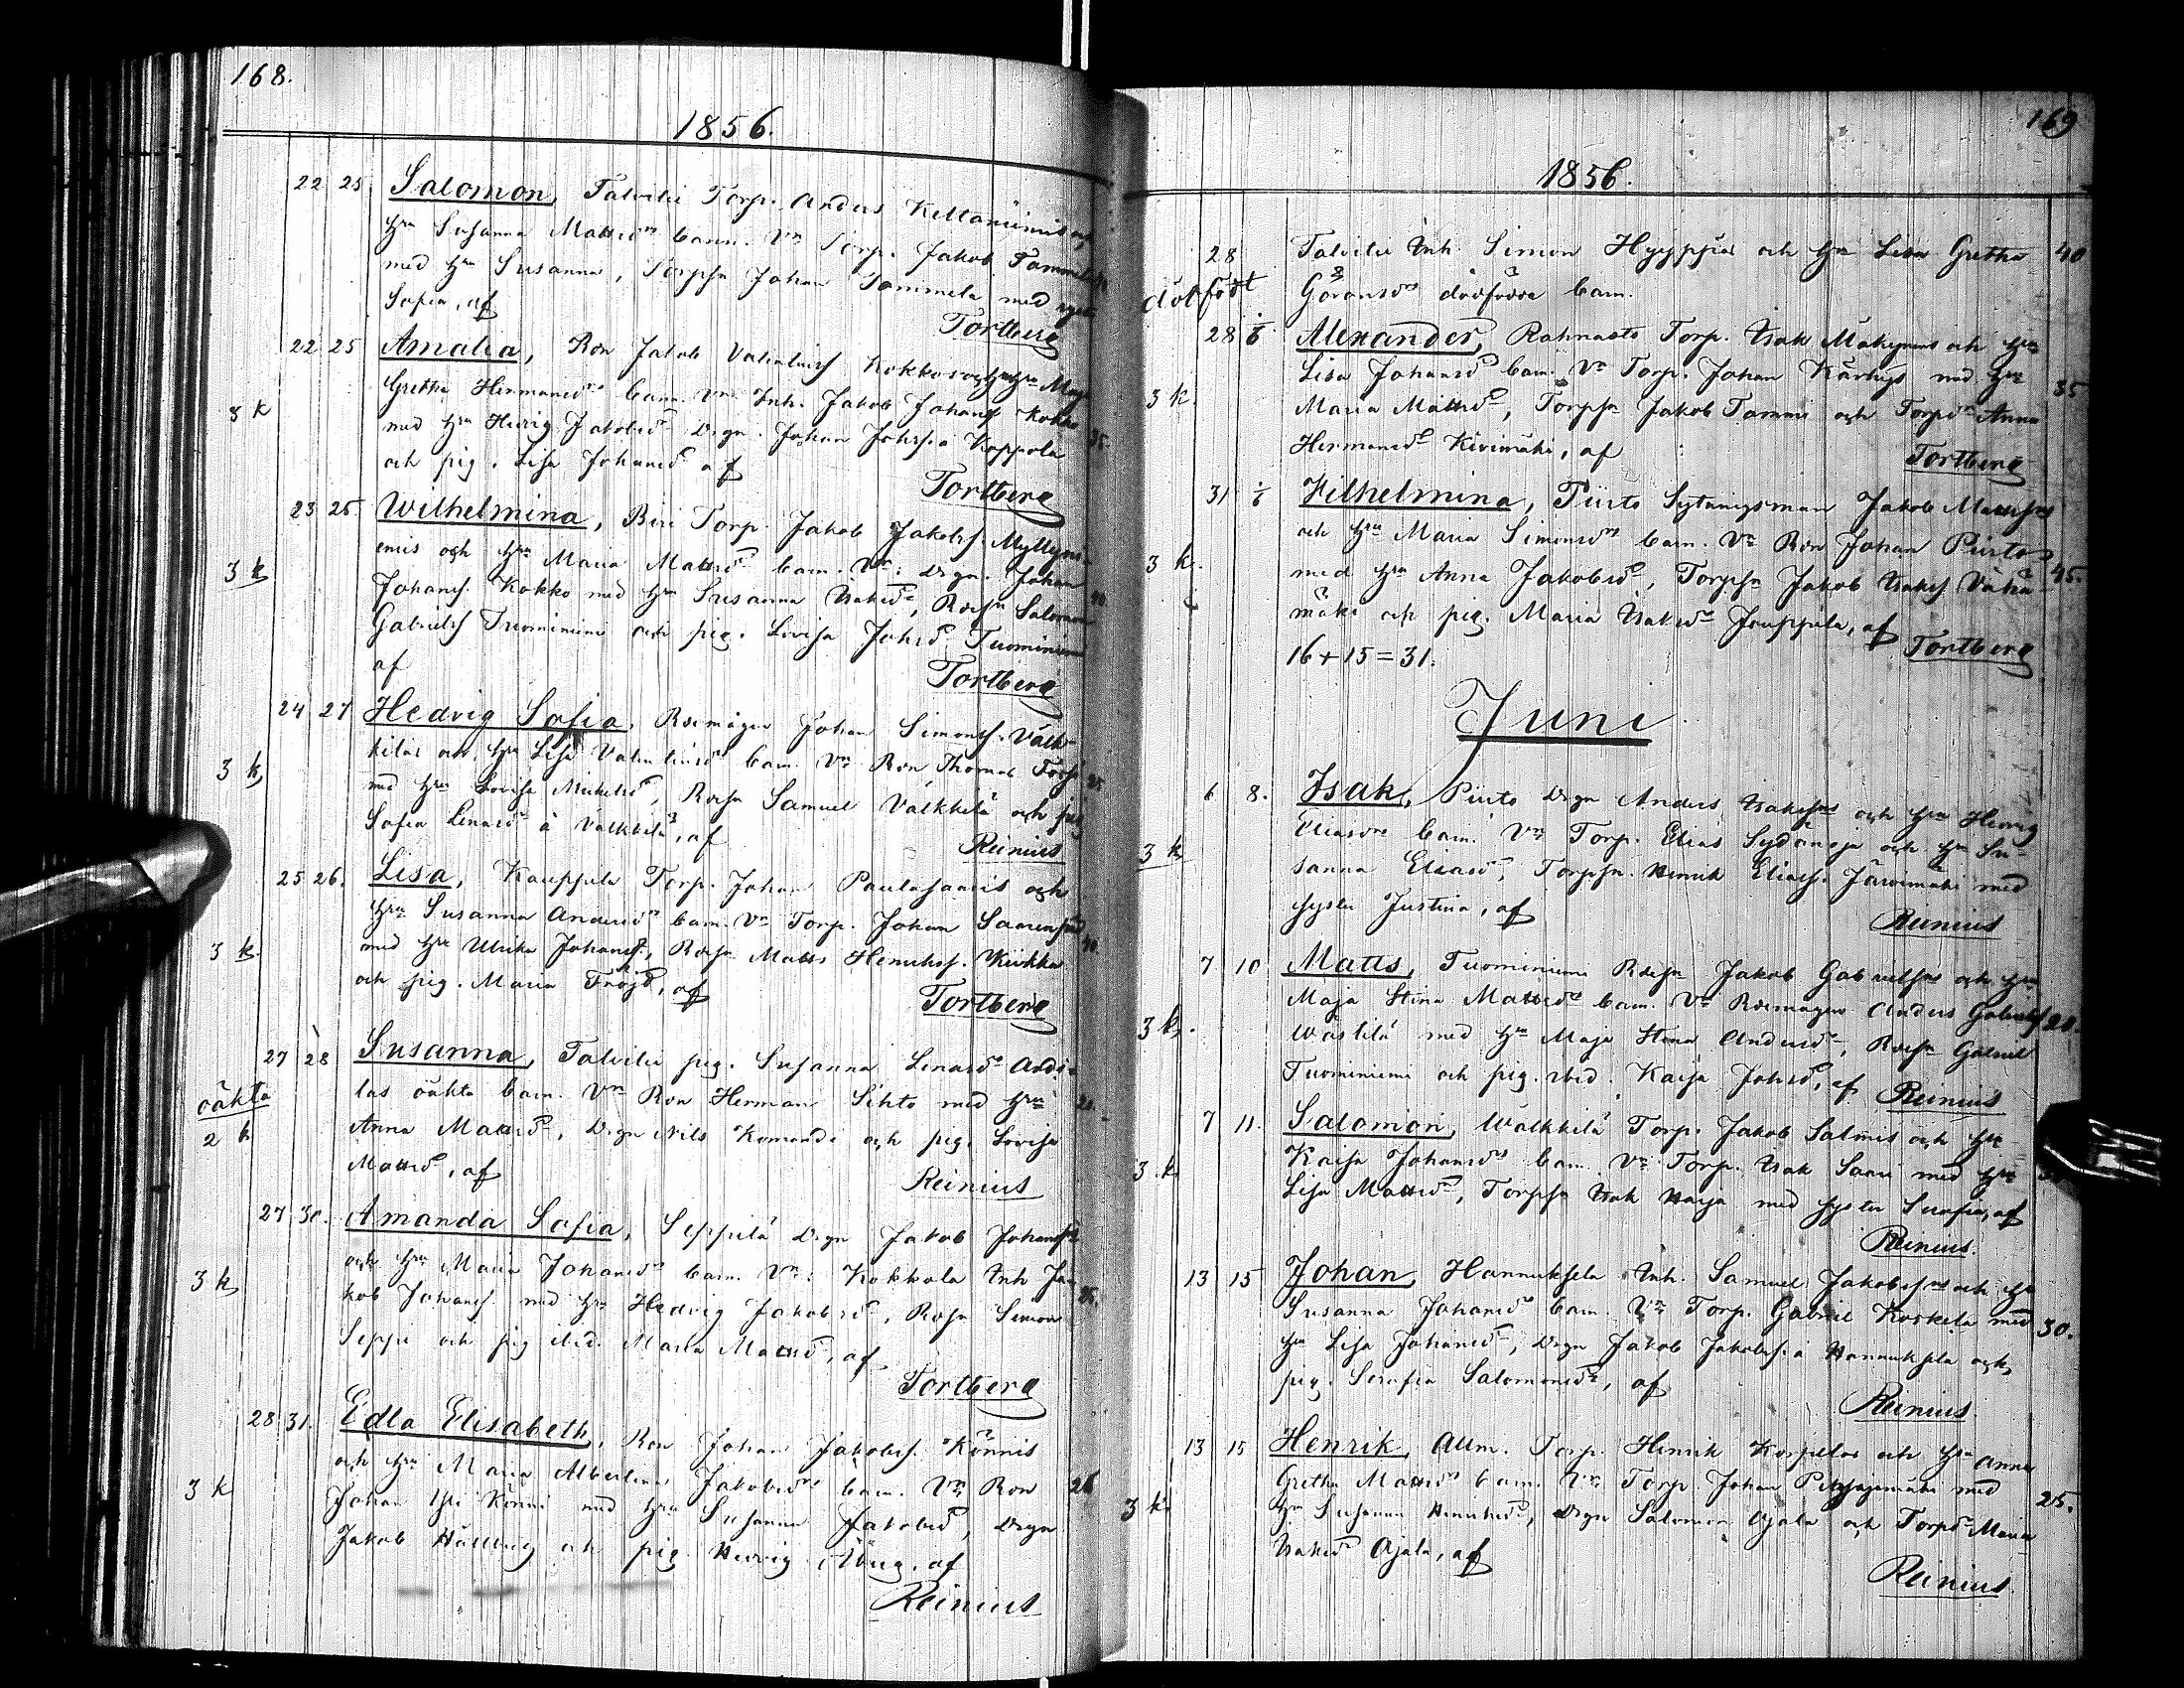 168.
1856.
22 25. Salomon, Talvitie Torp. Anders Keltaniemis och
hu Susanna Mattsdrs barn. Vn Torp. Jakob Tammela
med hu Susanna, Torpsn Johan Tammela med syst.
Sofia, af Tortberg
22 25 Amalia, Ron Jakob Valentins Kokkos och hu Maja
Gretha Hermansdrs barn. Vn Inh. Jakob Johans Kokko
3 k med hu Hedvig Jakobsdr Drgn. Johan Johss. a Koppola 35.
och pig. Lisa Johansdr af
Tortberg
23 25. Wilhelmina, Biri Torp. Jakob Jakobss. Myllyni-
emis och hu Maria Mattsdrs barn. Vn: Drgn. Johan
3 k Johanss. Kokko med hu Susanna Isaksdr, Rdesn Salomon
Gabrielss Tuominiemi och pig. Lovisa Johsdr Tuominiemi
af Tortberg
24 27 Hedvig Sofia, Rdemågen Johan Simonss. Välk-
kiläs och hu Lisa Valentinsdrs barn. Vn Ron Thomas
3 k, med hu Lovisa Michelsdr, Rdesn Samuel Välkkilä och pig
Sofia Lenasdr à Välkkilä, af
Reinius
25 26. Lisa, Kauppila Torp. Johan Paulasaaris och
hu Susanna Andersdrs barn. Vn Torp. Johan Saarenpää
3 k. med hu Ulrika Johansdr, Rdesn Matts Henrikss. Kiikka 40.
och pig. Maria Fröjd, af
Tortberg
27 28 Susanna, Talvitie pig. Susanna Lenasdr Anti-
oäkta las oäkta barn. Vn Ron Herman Sihto med hu 21.
2 k Anna Mattsdr, Drgn Nils Komandi och pig. Lovisa
Mattsdr, af
Reinius
27 30. Amanda Sofia, Seppilä Drgn Jakob Johanss
och hu Maria Johansdrs barn. Vn: Kokkola Inh Ja-
3 k kob Johanss. med hu Hedvig Jakobsdr, Rdsn Simon
Seppi och pig ibid. Maria Mattsdr, af
Tortberg
28 31. Edla Elisabeth, Ron Johan Jakobss. Könnis
och hu Maria Albertina Jakobsdrs barn. Vn Ron 26
3 k Johan Könni med hu Susanna Jakobsdr, Drgn
Jakob Hällberg och pig Hedvig Åberg, af
Reinius
169
1856.
28 Talvitie Inh Simon Hyyppäs och hu Lisa Gretha 40
dödfödt Göransdrs dödfödde barn.
28 1/6 Alexander, Rahnasto Torp. Isak Mäkynens och hu
Lisa Johansdrs barn. Vn Torp. Johan Kärkys med hu 35
3 k. Maria Mattsdr, Torpsn Jakob Tammi och Torpdr Anna
Hermansdr Kivimäki, af
Tortberg
31 1/6 Wilhelmina, Piirto Sytningsman Jakob Mattssons
och hu Maria Simonsdrs barn. Vn Ron Johan Piirto
3 k. med hu Anna Jakobsdr, Torpsn Jakob Isaks Vähä- 45.
mäki och pig. Maria Isaksdr Jouppila, af
16 + 15 = 31. Tortberg
Juni
6 8. Isak, Piirto Drgn Anders Isakssons och hu Hedvig
3 k, Eliasdrs barn. Vn Torp. Elias Sydänoja och hu Su-
sanna Eliasdr, Torpsn. Henrik Eliass. Järvimäki med
syster Justina, af
Reinius
7 10 Matts, Tuominiemi Rdesn Jakob Gabrielssons och hu
Maja Stina Mattsdrs barn. Vn Rdemågen Anders Gabrielss 21.
3 k. Wästilä med hu Maja Stina Andersdr, Rdesn Gabriel
Tuominiemi och pig. ibid. Kaisa Johsdr, af Reinius
7 11. Salomon, Wälkkilä Torp. Jakob Salmis och hu
3 k Kaisa Johansdrs barn. Vn Torp. Isak Saari med hu
Lisa Mattsdr, Torpsn Isak Harja med syster Serafia, af
Reinius.
13 15 Johan, Hannuksela Inh. Samuel Jakobssons och hu
Susanna Johansdrs barn. Vn Torp. Gabriel Koskela med 30.
hu Lisa Johansdr, Drgn Jakob Jakobss. a Hannuksela och
pig. Serafia Salomonsdr, af
Reinius.
13 15 Henrik, Allm. Torp. Henrik Korpelas och hu Anna
Gretha Mattsdrs barn. Vn Torp. Johan Pitkäjämäki med 25.
3 k. hu Susanna Henriksdr, Drgn Salomon Ojala och Torpdr Maria
Isaksdr Ojala, af
Reinius